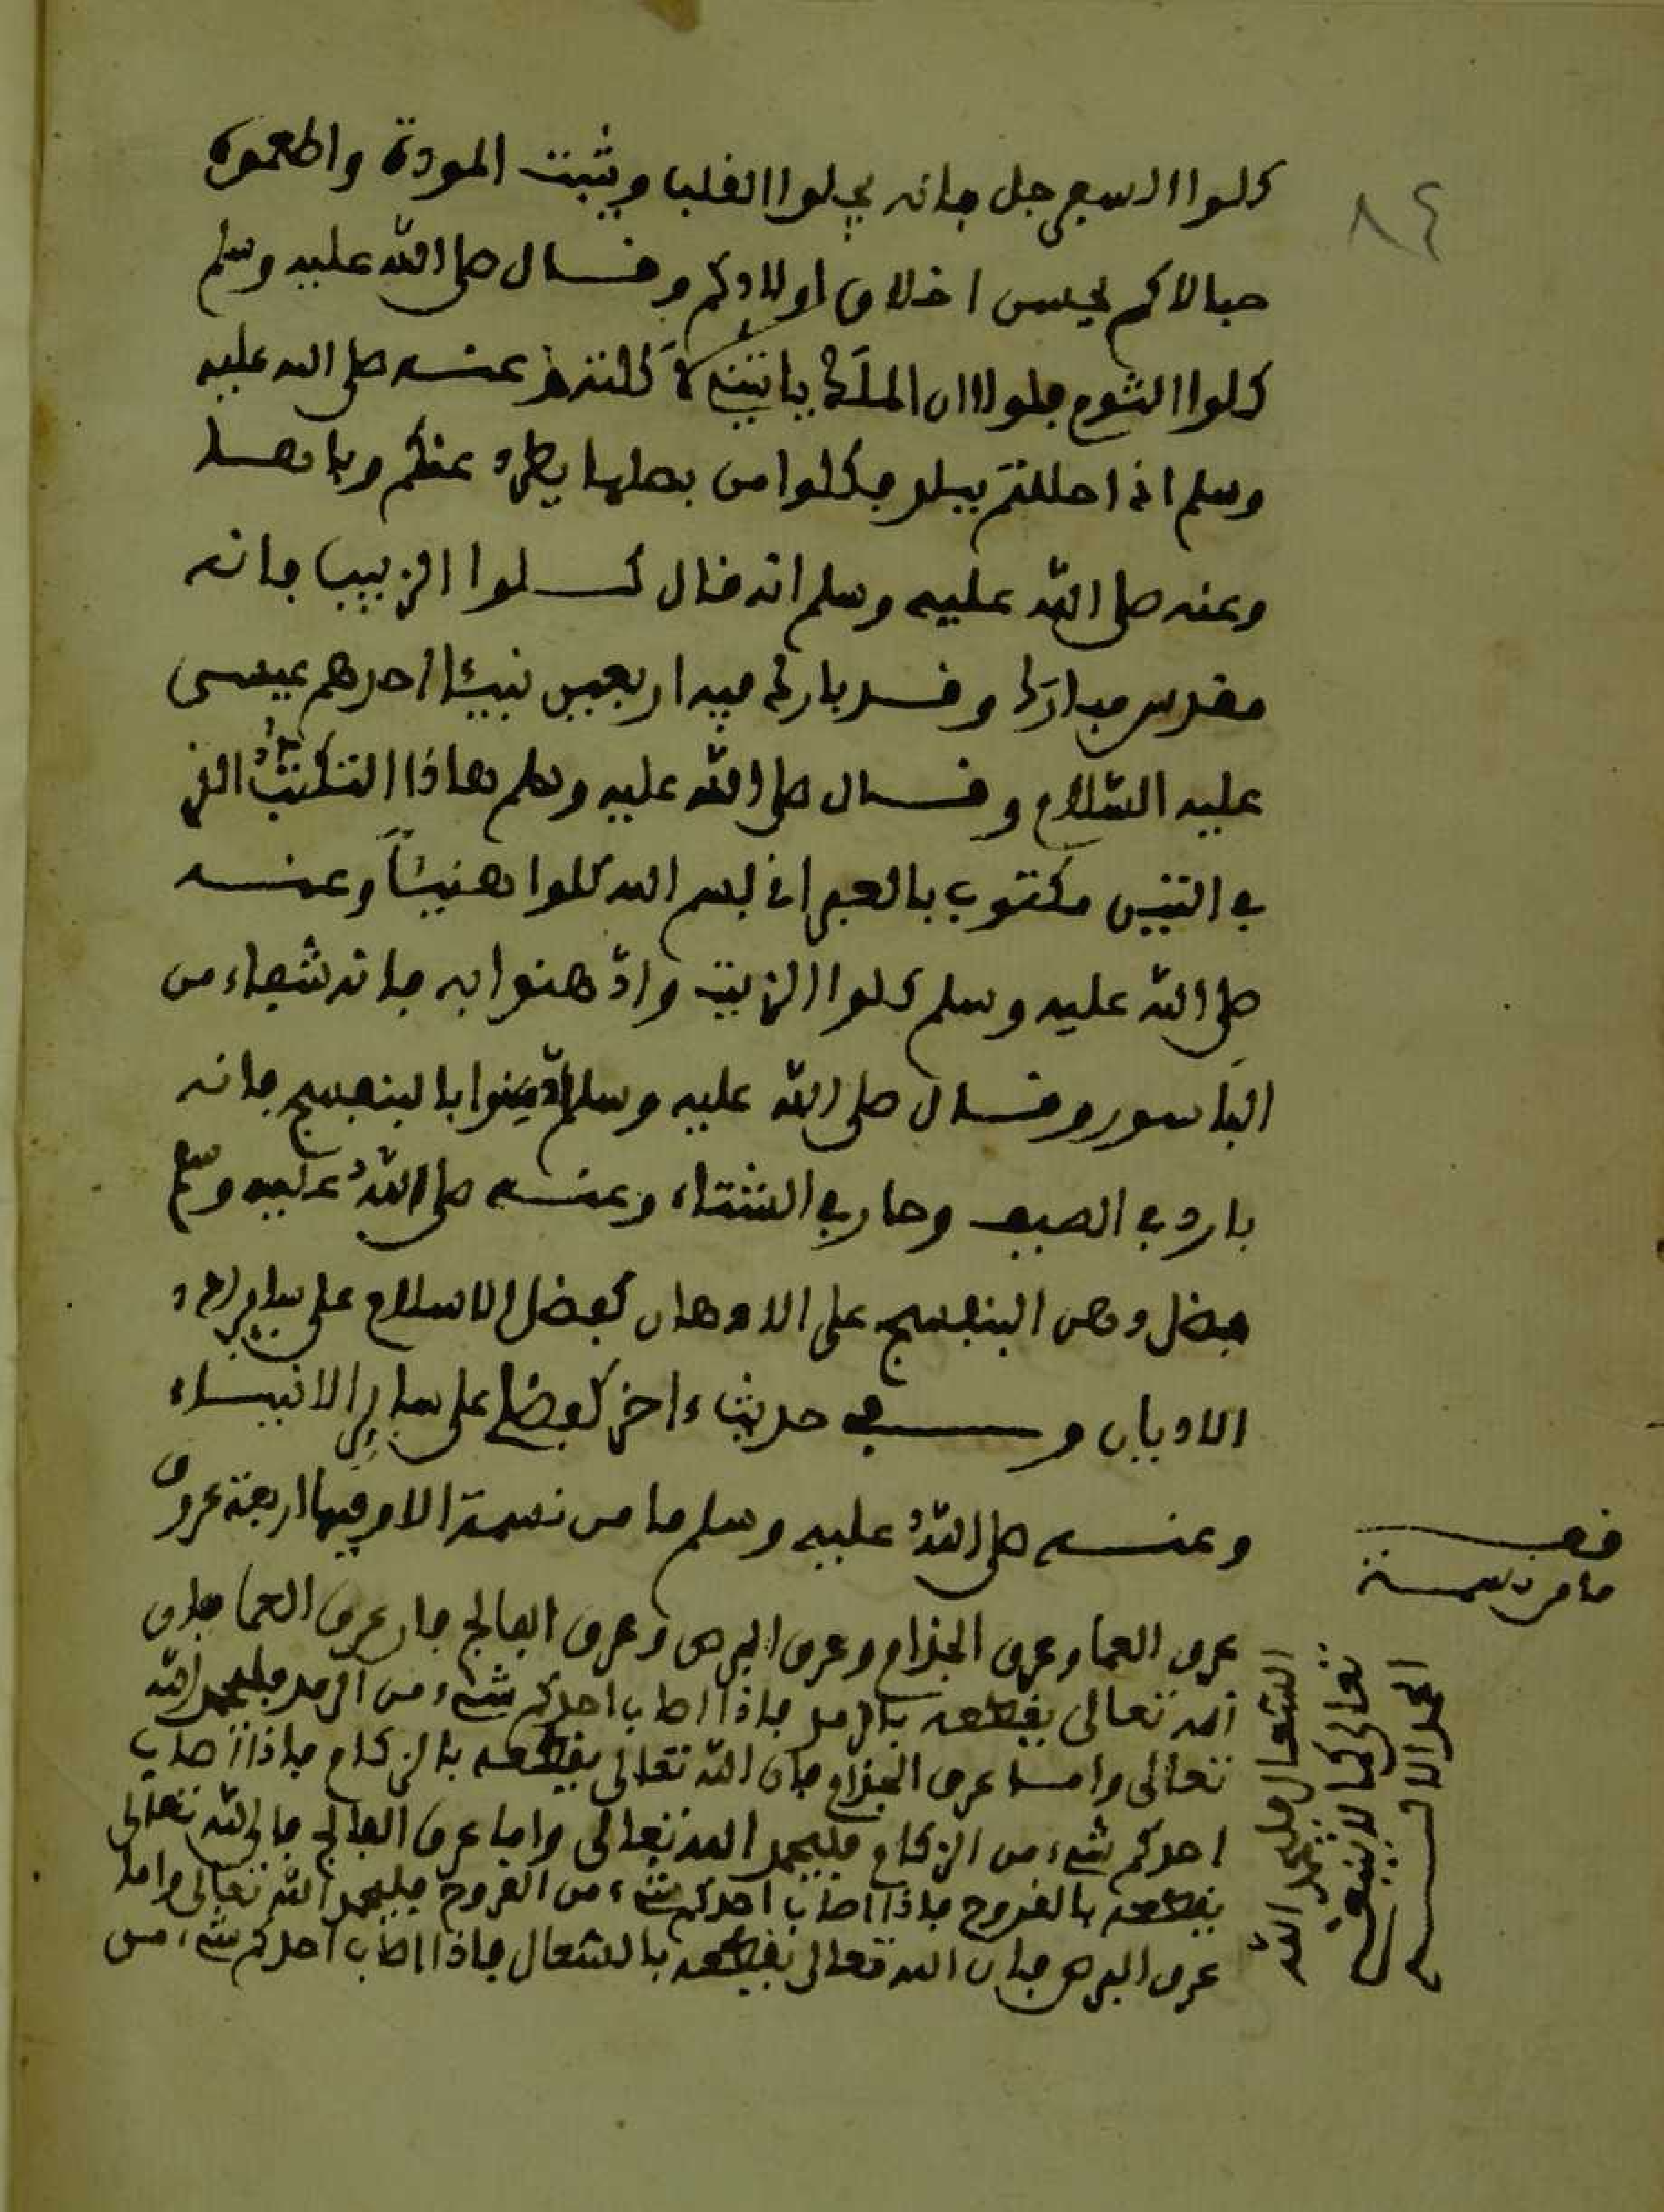 ٨٤
كلوا السفرجل فانه يجلوا القلب ويثبت المودة واطعموه
حبالاكم يحسن اخلاق اولادكم وقال صلى الله عليه وسلم
كلوا الثوم فلولا ان الملك ياتيني لاكلته وعنه صلى الله عليه
وسلم اذا حللتم ببلد فكلوا من بصلها يطرد عنكم وباءها
وعنه صلى الله عليه وسلم انه قال كلوا الزبيب فانه
مقدس مبارك وقد بارك فيه اربعين نبيئا احدهم عيسى
عليه السلام وقال صلى الله عليه وسلم هاذا التكتب الذي
في التين مكتوب بالعبراني بسم الله كلوا هنيئا وعنه
صلى الله عليه وسلم كلوا الزيت وادهنوا به فانه شفاء من
الباسور وقال صلى الله عليه وسلم ادهنوا بالبنفسج فانه
بارد في الصيف وحار في الشتاء وعنه صلى الله عليه وسلم
فضل دهن البنفسج على الادهان كفضل الاسلام على ساير
الاديان وفي حديث ءاخر كفضلي على ساير الانبياء
وعنه صلى الله عليه وسلم ما من نسمة الا وفيها اربعة عروق
عرق العما وعرق الجذام وعرق البرص وعرق الفالج فان عرق العما فان
الله تعالى يقطعه بالرمد فاذا اصاب احدكم شيء من الرمد فليحمد الله
تعالى واما عرق الجذام فان الله تعالى يقطعه بالزكام فاذا اصاب
احدكم شيء من الزكام فليحمد الله تعالى واما عرق الفالج فان الله تعالى
يقطعه بالقروح فاذا اصاب احدكم شيء من القروح فليحمد الله تعالى واما
عرق البرص فان الله تعالى يقطعه بالسعال فاذا اصاب احدكم شيء من
قف
ما من نسمة
السعال فليحمد الله
تعالى